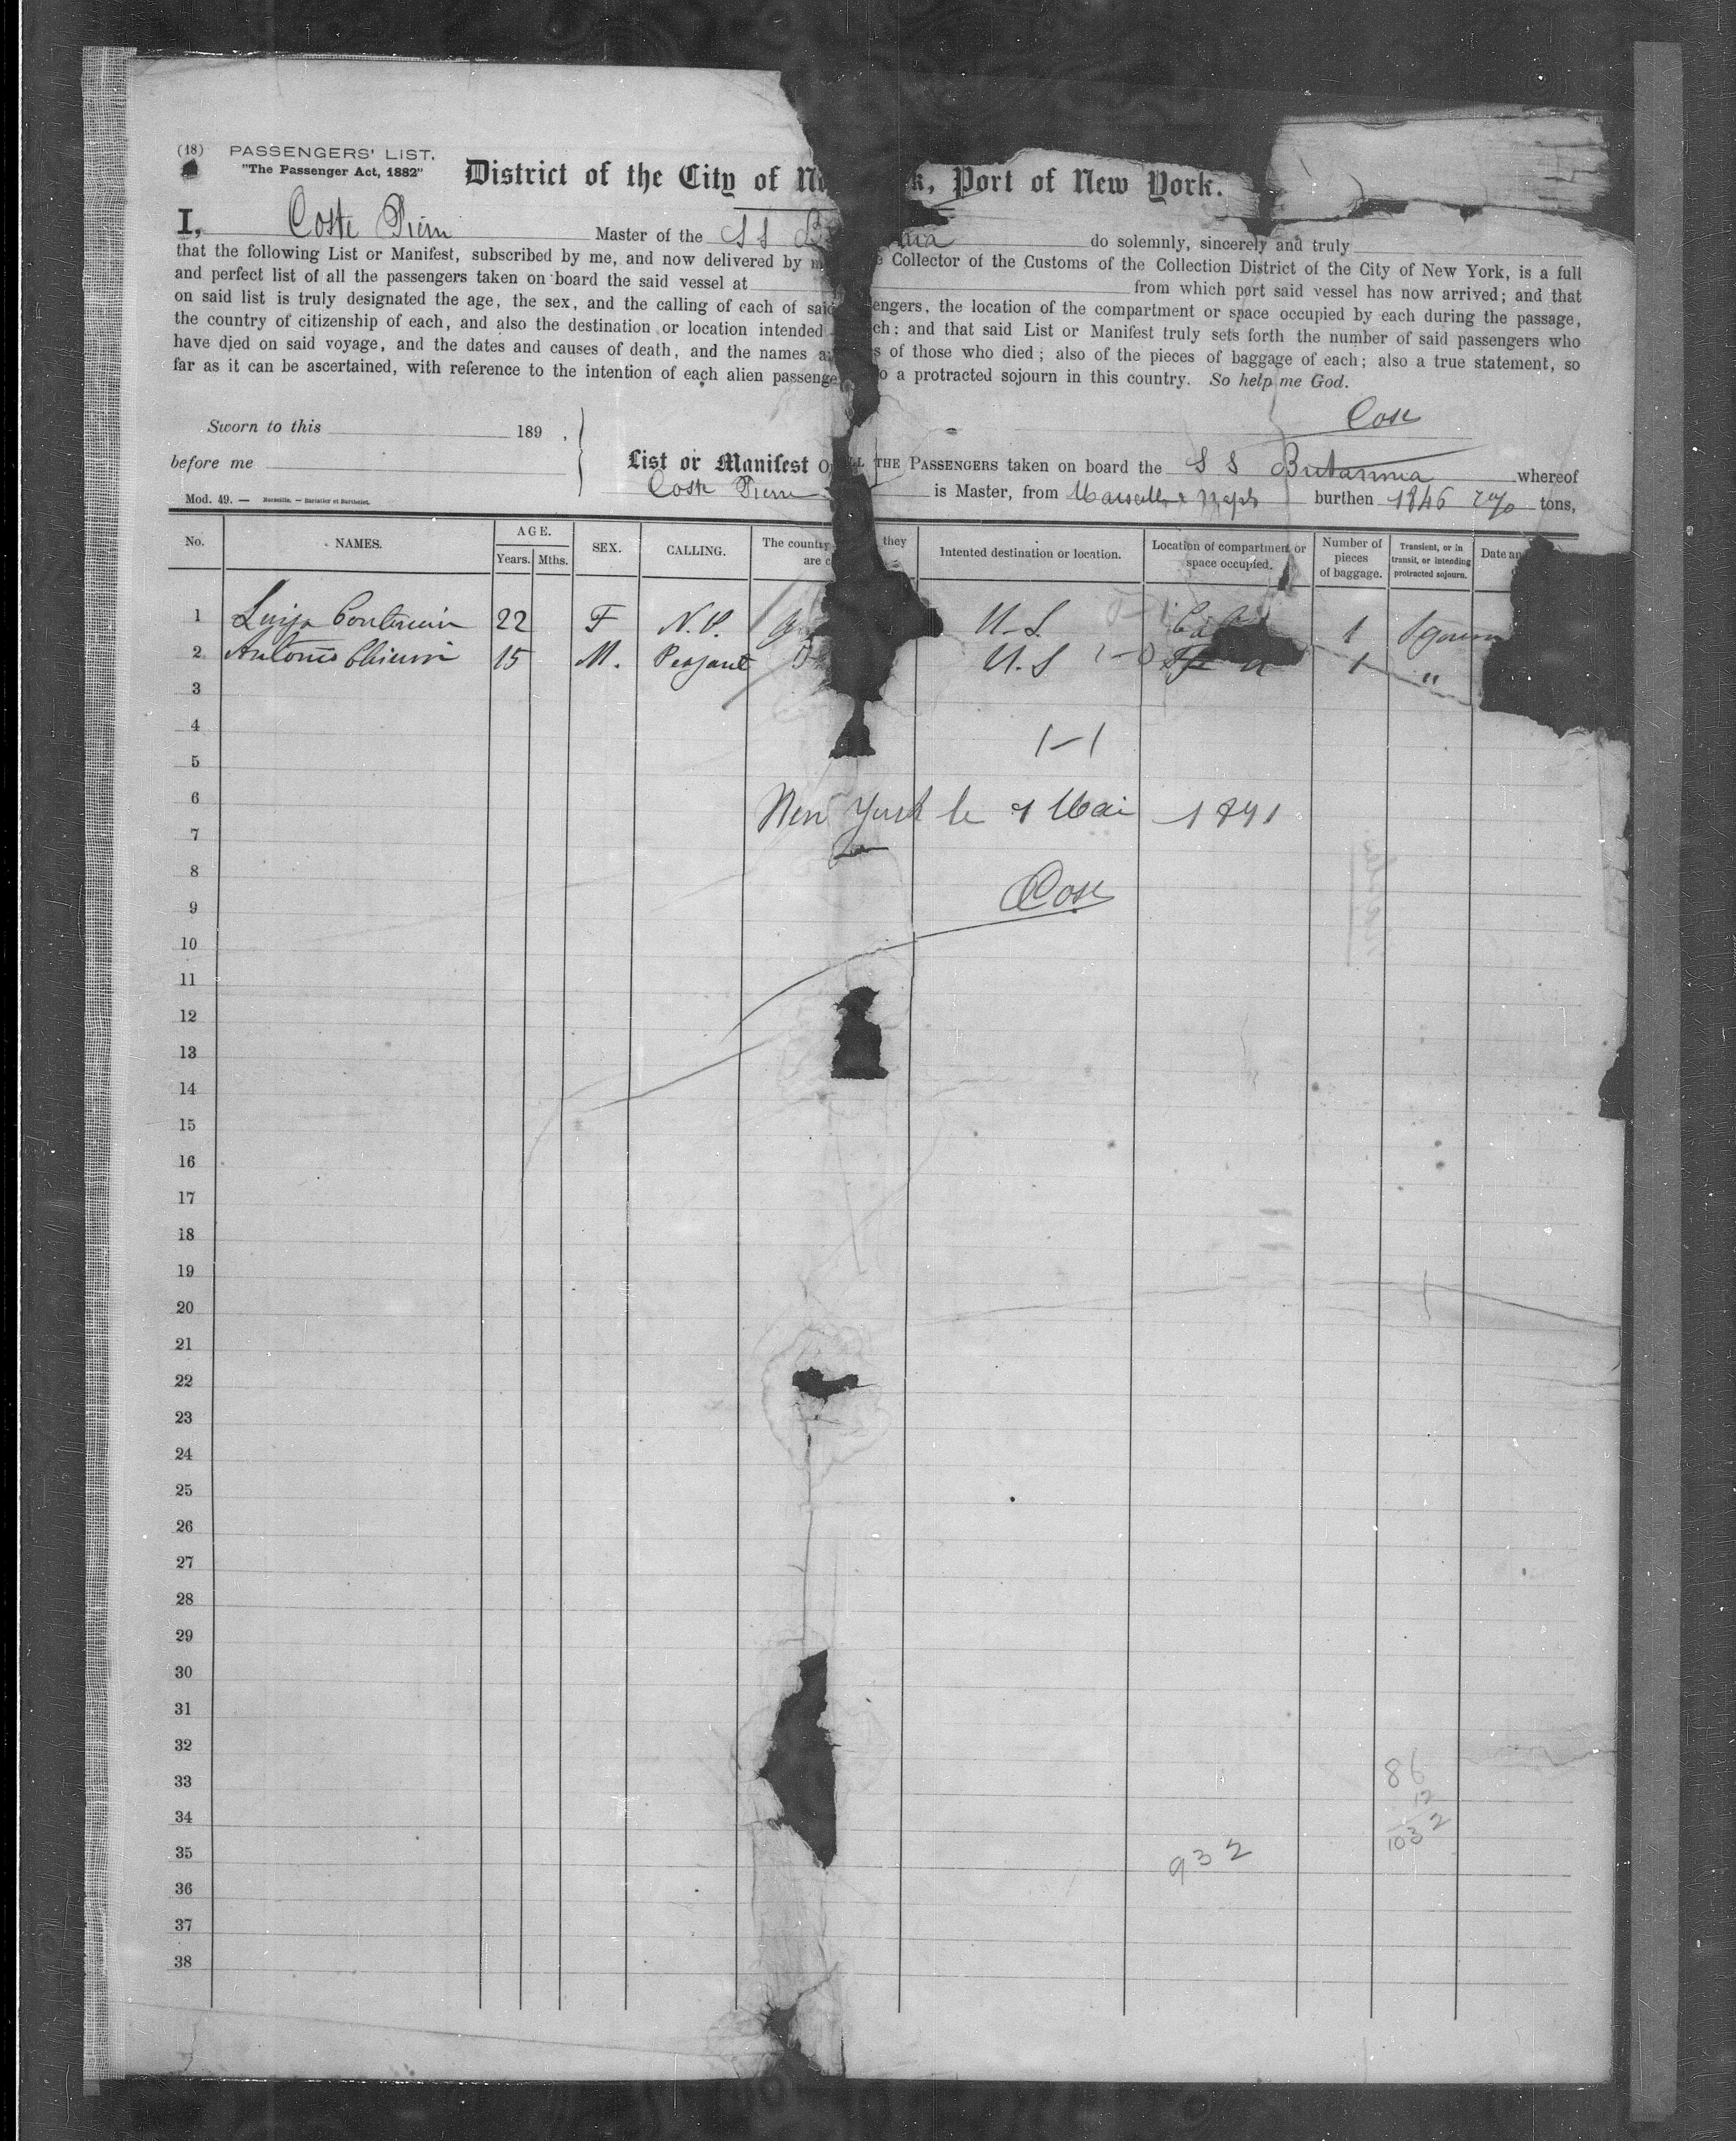 (18) PASSENGERS' LIST.
"The Passenger Act, 1882"
District of the City of Ne k, Port of New York.
I, Coste Pierre Master of the SS B nia do solemnly, sincerely and truly
that the following List or Manifest, subscribed by me, and now delivered by m Collector of the Customs of the Collection District of the City of New York, is a full
and perfect list of all the passengers taken on board the said vessel at from which port said vessel has now arrived; and that
on said list is truly designated the age, the sex, and the calling of each of said engers, the location of the compartment or space occupied by each during the passage,
the country of citizenship of each, and also the destination or location intended ch; and that said List or Manifest truly sets forth the number of said passengers who
have died on said voyage, and the dates and causes of death, and the names a s of those who died; also of the pieces of baggage of each; also a true statement, so
far as it can be ascertained, with reference to the intention of each alien passenge o a protracted sojourn in this country. So help me God.
Coste
Sworn to this 189 ,
before me
List or Manifest O LL THE PASSENGERS taken on board the S S Britannia whereof
Coste Pierre is Master, from Marseille & Naples burthen 1846 tons,
Mod. 49. — Marseille. — Barlatier et Barthelet.
No. NAMES. AGE. Years. Mths. SEX. CALLING. The country they are c Intented destination or location. Location of compartment or space occupied. Number of pieces of baggage. Transient, or in transit, or intending protracted sojourn. Date an
1 Luigia 22 F N.P. U.S. 1
2 Antonio 15 M. Peasant U.S 1-0 1 "
3
4
1-1
5
6
New York le 1 Mai 1891
7
8
Coste
9
10
11
12
13
14
15
16
17
18
19
20
21
22
23
24
25
26
27
28
29
30
31
32
33 86
12
34
1032
35 932
36
37
38